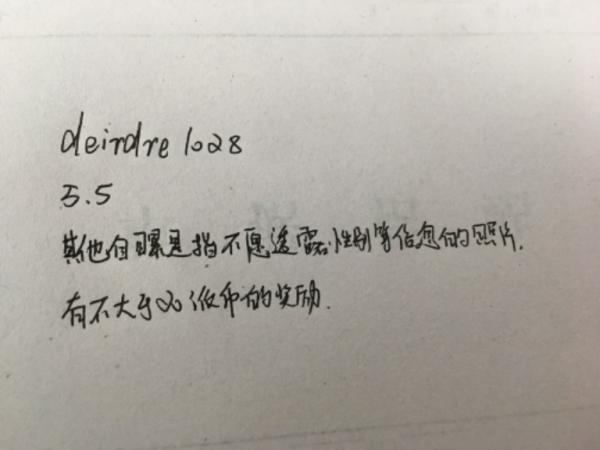 deirdre 1028
5.5
其他自曝是指不愿透露性别等信息的照片.
有不大于20派币的奖励.